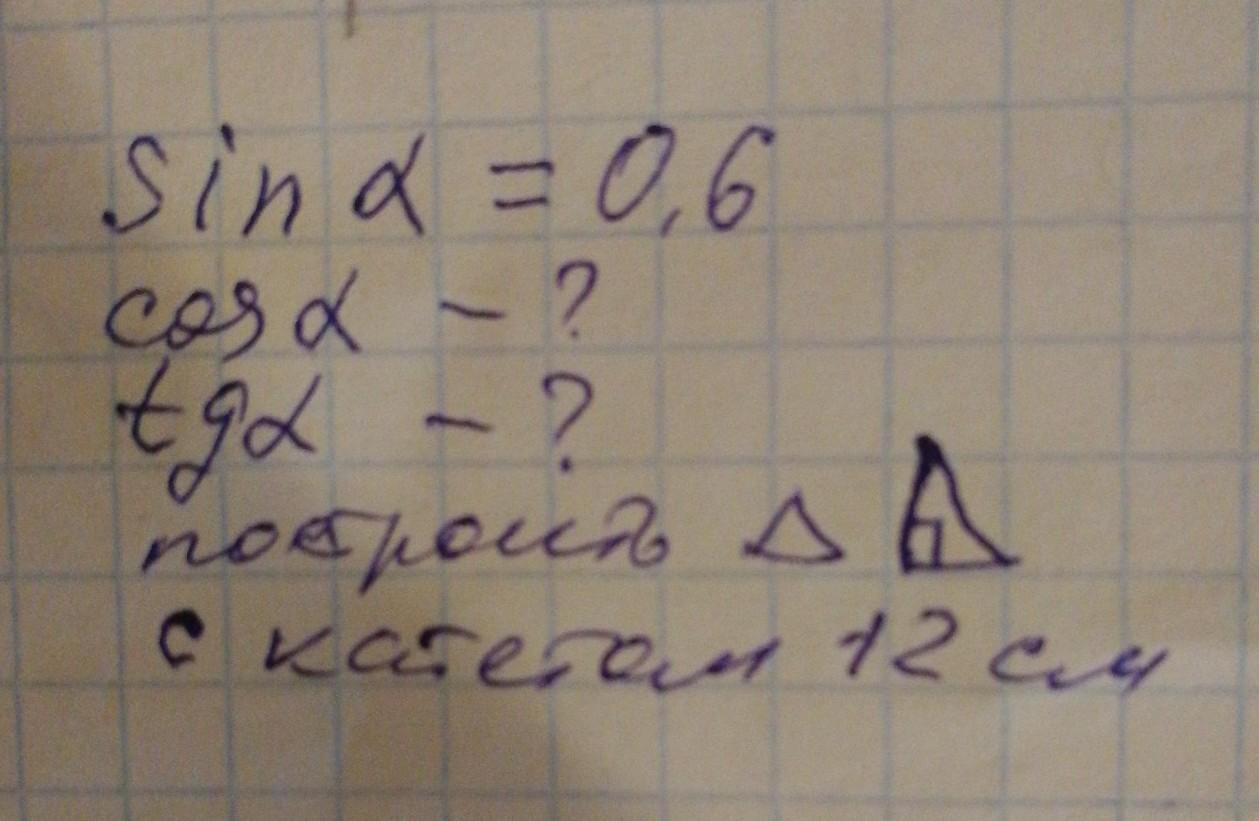 sin α = 0,6
cos α - ?
tg α - ?
построить △
с катетом 12 см